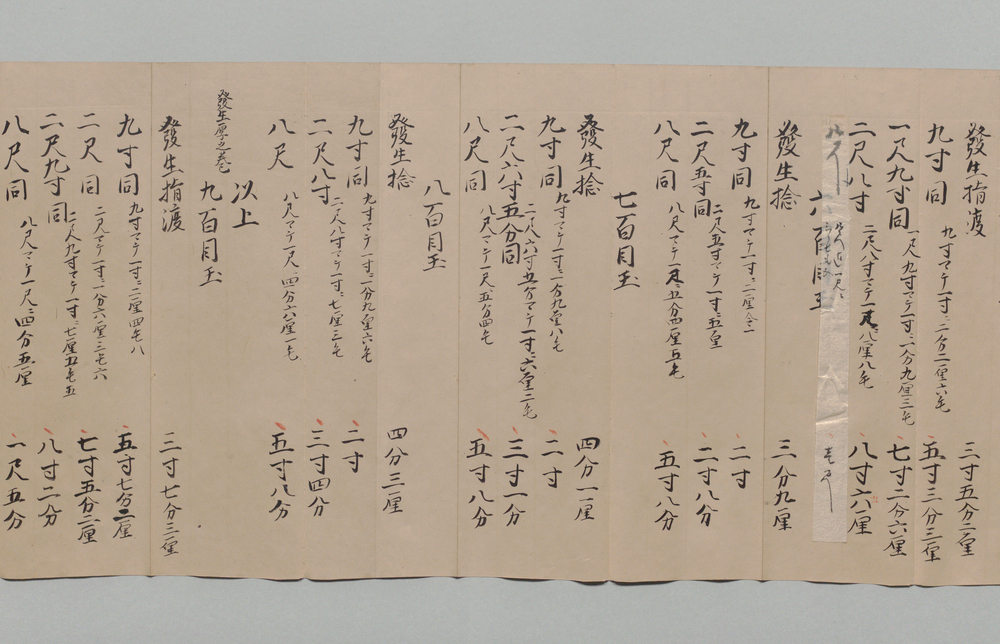 發生指渡　三寸五分二厘
九寸同　九寸マテ一寸ニ二分二厘六毛　五寸三分三厘
一尺九寸同　一尺九寸マテ一寸ニ一分九厘三毛　七寸二分六厘
二尺八寸　二尺八寸マテ一尺ニ八厘八毛　八寸六一厘
六百目玉
發生捻　三分九厘
九寸同　九寸マテ一寸ニ二厘　二寸
二尺五寸同　二尺五寸マテ一寸ニ五厘　二寸八分
八尺同　八尺マテ一尺ニ五分四厘五毛　五寸八分
七百目玉
發生捻　四分一厘
九寸同　九寸マテ一寸ニ一分九厘八毛　二寸
二尺六寸五分同　二尺六寸五分マテ一寸ニ六厘二毛　三寸一分
八尺同　八尺マテ一尺ニ五分四毛　五寸八分
八百目玉
發生捻　四分三厘
九寸同　九寸マテ一寸ニ一分九厘六毛　二寸
二尺八寸　二尺八寸マテ一寸ニ七厘二毛　三寸四分
八尺　八尺マテ一尺ニ四分六厘一毛　五寸八分
以上
九百目玉
發生厚之巻
發生指渡　三寸七分三厘
九寸同　九寸マテ一寸ニ二厘四毛八　五寸七分二厘
二尺同　二尺マテ一寸ニ一分六厘三毛六　七寸五分二厘
二尺九寸同　二尺九寸マテ一寸ニ七厘五毛五　八寸二分
八尺同　八尺マテ一尺ニ四分五厘　一尺五分